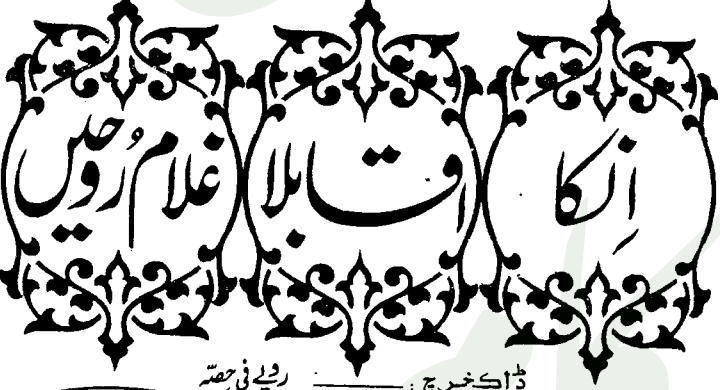 اِنکا اقابلا غلام رُوحیں
ڈاک خرچ: روپے فی حِصّہ